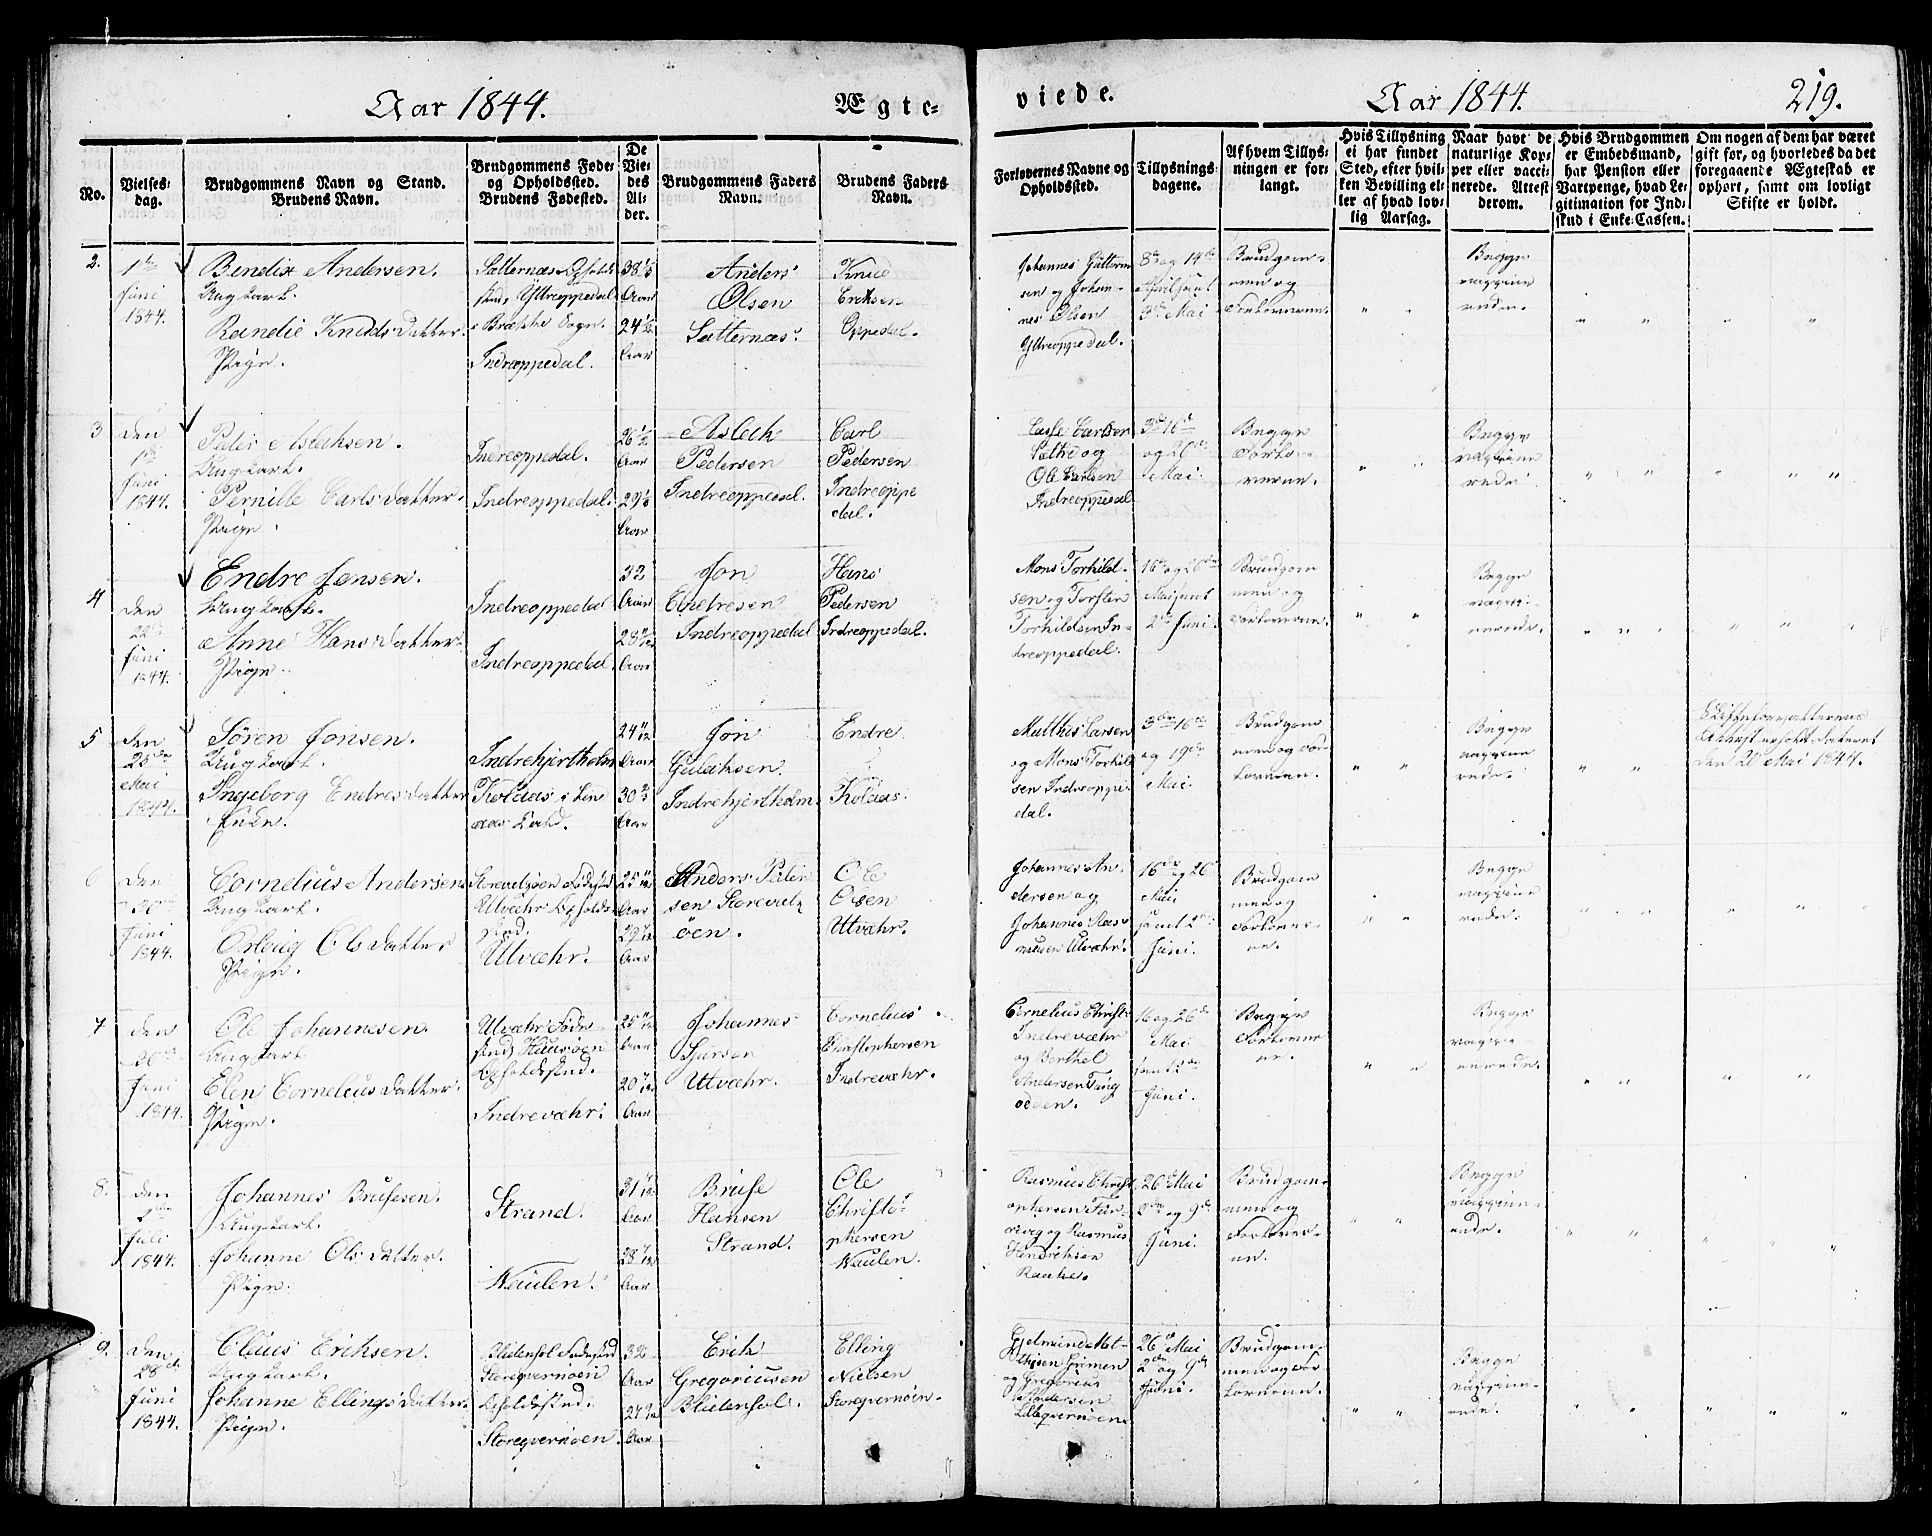 Aar 1844.
Ægte-
viede.
Aar 1844.
219.
No.
Vielses-
dag.
Brudgommens Navn og Stand.
Brudens Navn.
Brudgommens Føde-
og Opholdssted.
Brudens Fødested.
De
Vie-
des
Al-
der.
Brudgommens Faders
Navn.
Brudens Faders
Navn.
Forlovernes Navne og
Opholdssted.
Tillysnings-
dagene.
Af hvem Tillys-
ningen er for-
langt.
Hvis Tillysning
ei har fundet
Sted, efter hvil-
ken Bevilling el-
ler af hvad lov-
lig Aarsag.
Naar havt de
naturlige Kop-
per eller vacci-
nerede. Attest
derom.
Hvis Brudgommen
er Embedsmand,
har Pension eller
Vartpenge, hvad Le-
gitimation for Ind-
skud i Enke-Cassen.
Om nogen af dem har været
gift før, og hvorledes da det
foregaaende Ægteskab er
ophørt, samt om lovligt
Skifte er holdt.
2.
Juni
1844.
Bendix Andersen.
Ungkarl.
Randie Knudsdatter.
Pige.
Ytreoppedal
Brække Sogn.
Indreoppedal.
38 1/3
Aar
24
Aar
Anders
Olsen
Sætternæs.
Knud
Eriksen
Oppedal.
Johannes
sen og Johan-
nes Olsen
Ytreoppedal.
8de og 14de
April samt
3de Mai
Brudgom-
men og
Forloverne.
Begge
vaccine
rede.
3
Den
Juni
1844.
Peder Aslaksen.
Ungkarl.
Pernille Carlsdatter.
Pige.
Indreoppedal.
Indreoppedal.
26 1/2
Aar
29 1/3
Aar
Aslak
Pedersen
Indreoppedal.
Carl
Pedersen
Indreoppe
dal.
Lasse Carlsen
og
Ole Carlsen
Indreoppedal
3de 16de
og 26de
Mai.
Begge
Forlo-
verne.
Begge
vaccine
rede.
4
Den
22de
Juni
1844.
Endre Jonsen.
Ungkarl.
Anne Hansdatter.
Pige.
Indreoppedal
Indreoppedal.
32
Aar
28
Aar
Jon
Endresen
Indreoppedal
Hans
Pedersen
Indreoppedal.
Mons Torkild-
sen og Torsten
Torkildsen In-
dreoppedal.
16de og 26de
Mai samt
2den Juni.
Brudgom
men og
Forloverne.
Begge
vacci-
nerede.
5
Den
25de
Mai
1844.
Søren Jonsen.
Ungkarl.
Ingeborg Endresdatter
Enke.
Indrehjertholm
Kolaas i
24 11/12
Aar
30 2/3
Aar
Jon
Gulaksen.
Indrehjertholm.
Endre
Kolaas.
Matthis Larsen
og Mons Torkil
sen Indreoppe-
dal.
3die 16de
og 19de
Mai.
Brudgom
men og For-
loverne.
Begge
vaccine
rede.
Skifteforvalterens
Attest
den 20 Mai 1844.
6
Den
30
Juni
1844.
Cornelius Andersen
Ungkarl.
Olsdatter
Pige.
Fødested
Utvæhr Opholds-
sted.
Utvæhr.
25 11/12
Aar
29
Aar
Anders Peder
sen Storevetz
öen.
Ole
Olsen
Utvæhr.
Johannes An-
dersen og
Johannes Ras-
musen Utvæhr.
16de og 26
Mai
samt 2den
Juni.
Brudgom
men og
Forlover-
ne.
Begge
vaccine
rede.
7
Den
Juni
1844.
Ole Johannesen.
Ungkarl
Elen Corneliusdatter.
Pige.
Utvæhr Føde-
sted,
Opholdssted.
Indrevæhr.
25 11/12
Aar
20
Aar
Johannes
Sjursen
Utvæhr.
Cornelius
Christophersen
Indrevæhr.
Cornelius Christ-
Indrevæhr
og Berthel
Andersen
16 og 26de
Mai
samt 2den
Juni.
Begge
Forlover
ne.
Begge
vacci-
nerede.
8.
Den
Juli
1844.
Johannes Brusesen.
Ungkarl.
Johanne Olsdatter.
Pige.
Strand.
Naulen.
31
Aar
28
Aar
Bruse
Hansen
Strand.
Ole
Christo-
phersen
Naulen.
Rasmus Christ-
ophersen
og Rasmus
Hendriksen
26de Mai
2den og 9de
Juni.
Brudgom-
men og
Forlover-
ne.
Begge
vaccine-
rede.
9.
Den
28de
Juni
1844.
Claus Eriksen.
Ungkarl.
Johanne Ellingsdatter
Pige.
Fødested
Storeqvernöen
Opholdssted.
Storeqvernöen.
32
Aar
24
Aar
Erik
Gregoriusen
Elling
Nielsen
Storeqvernöen.
og Gregorius
Andersen
Lilleqvernöen
26de Mai
2den og 9de
Juni.
Brudgom-
men og For
loverne.
Begge
vaccine-
rede.